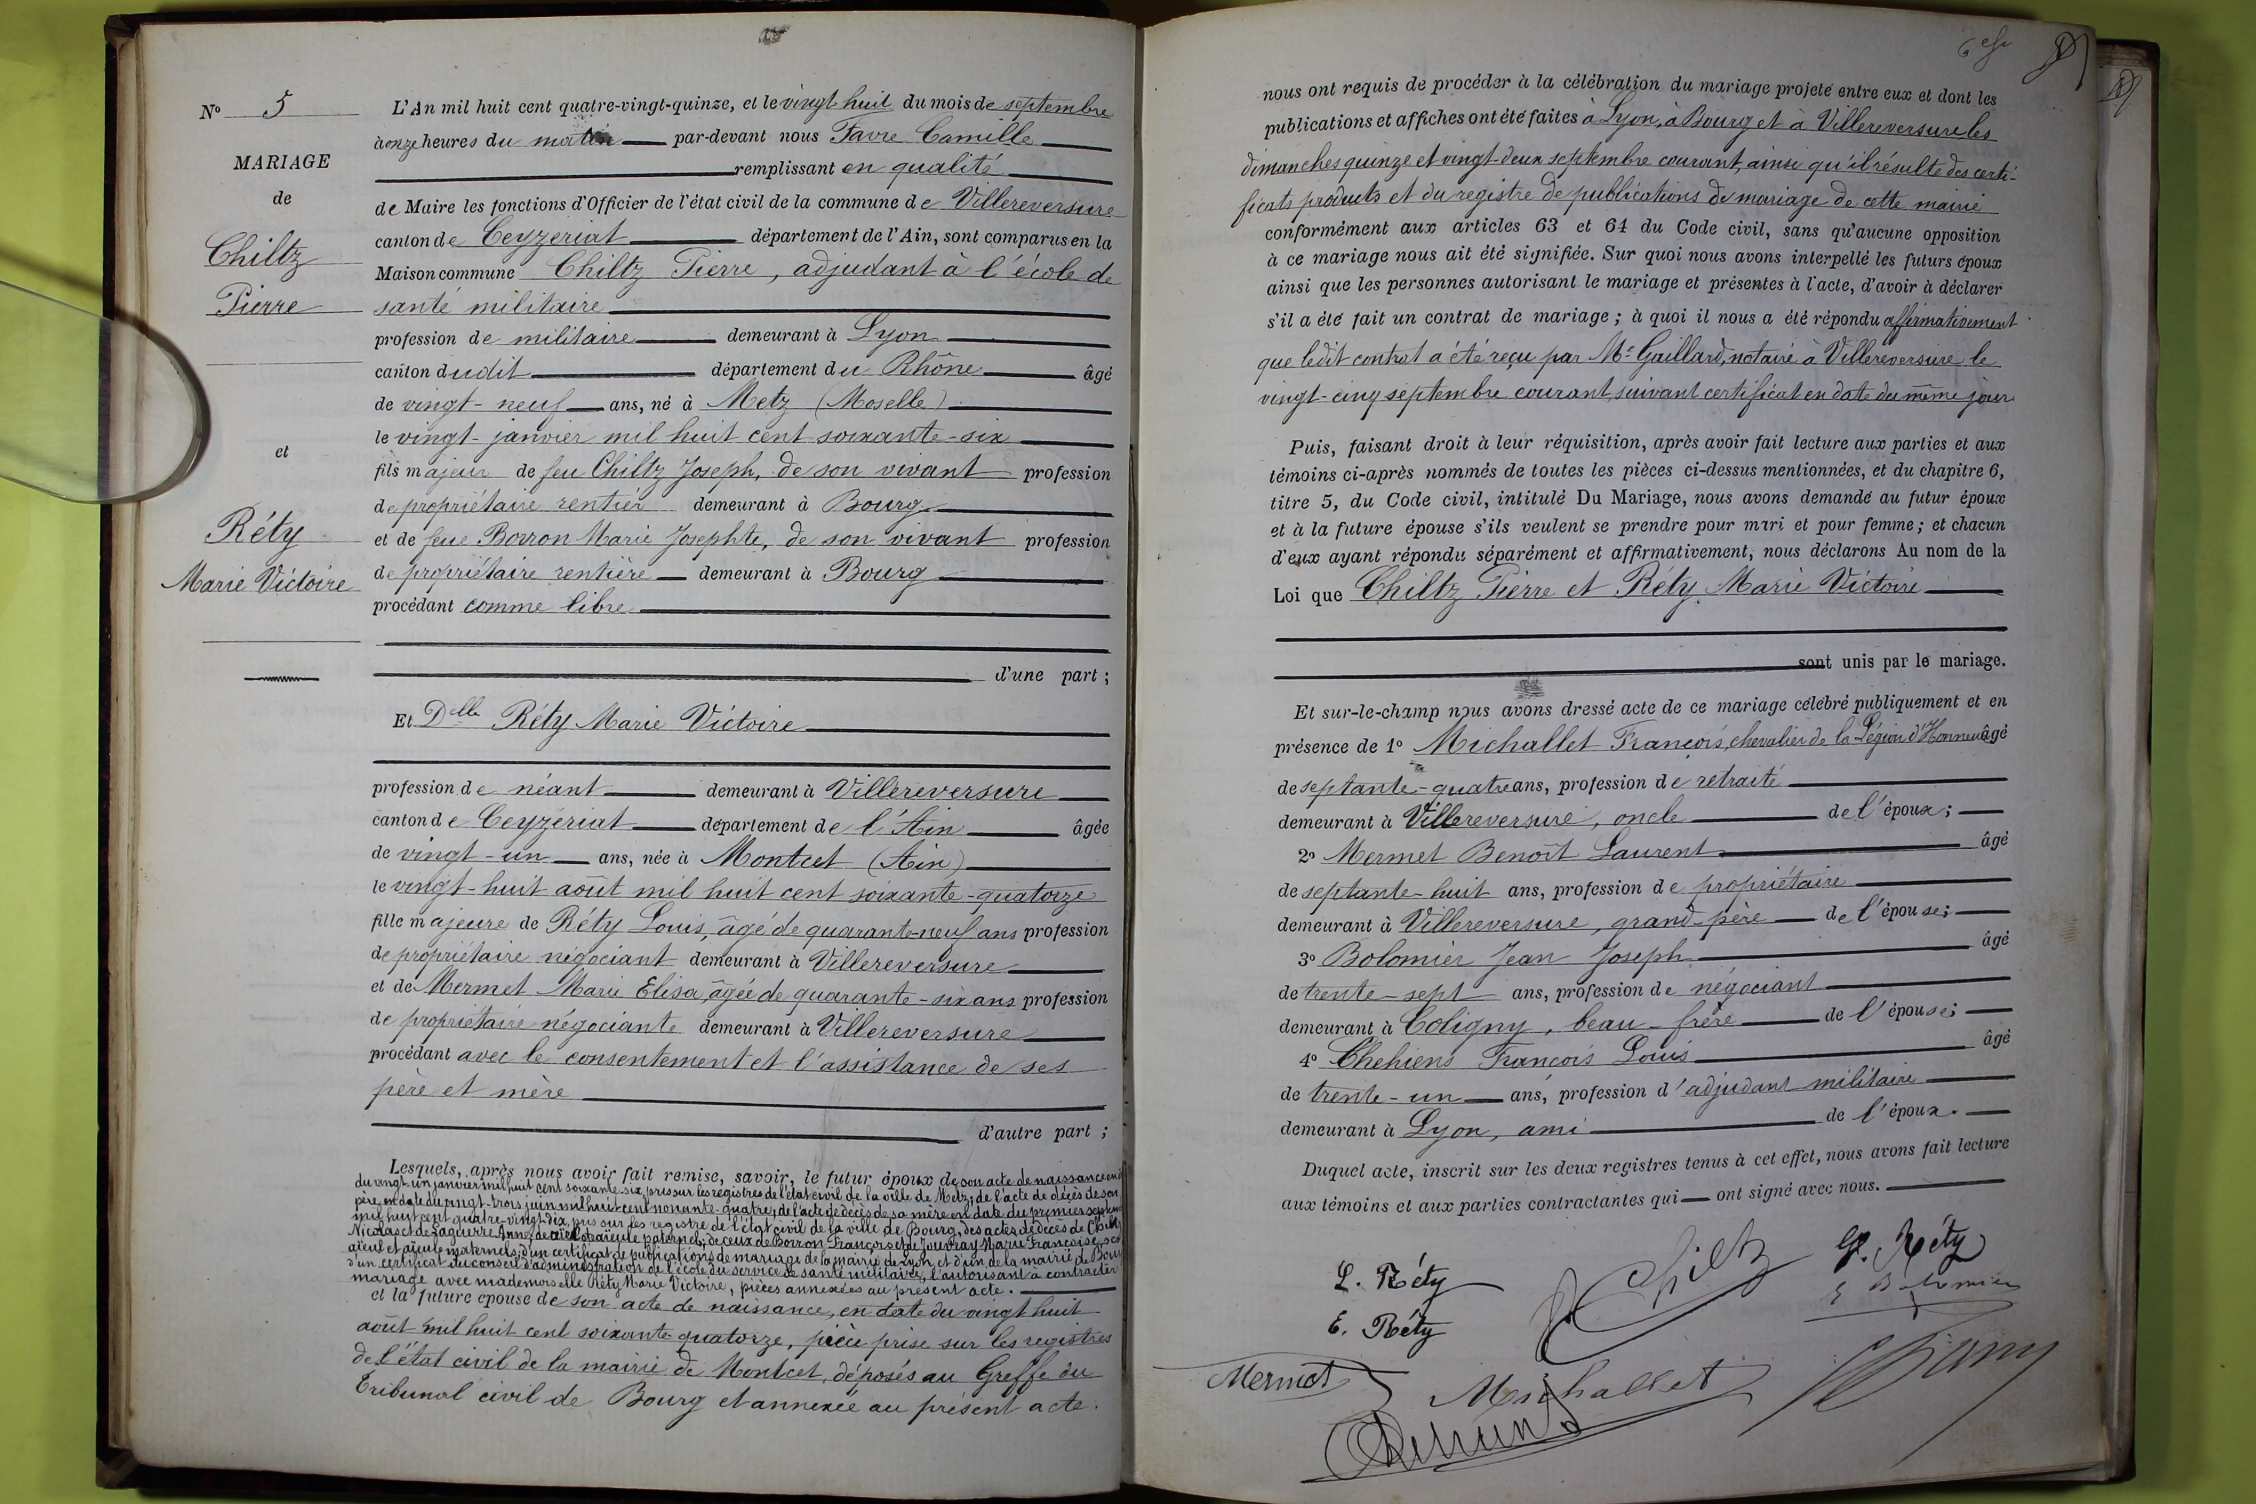 N° 5
MARIAGE
de
Chiltz
Pierre
et
Réty
Marie Victoire
L'An mil huit cent quatre-vingt-quinze, et le vingt huit du mois de septembre
à onze heures du matin par-devant nous Favre Camille
remplissant en qualité
de Maire les fonctions d'Officier de l'état civil de la commune de Villereversure
canton de Ceyzériat département de l'Ain, sont comparus en la
Maison commune Chiltz Pierre, adjudant à l'école de
santé militaire
profession de militaire demeurant à Lyon
canton dudit département du Rhône âgé
de vingt-neuf ans, né à Metz (Moselle)
le vingt-janvier mil huit cent soixante-six
fils majeur de feu Chiltz Joseph, de son vivant profession
de propriétaire rentier demeurant à Bourg
et de feue Borron Marie Josephte, de son vivant profession
de propriétaire rentière demeurant à Bourg
procédant comme libre
d'une part ;
Et Delle Réty Marie Victoire
profession de néant demeurant à Villereversure
canton de Ceyzériat département de l'Ain âgée
de vingt-un ans, née à Montcet (Ain)
le vingt-huit août mil huit cent soixante-quatorze
fille majeure de Réty Louis, âgé de quarante-neuf ans profession
de propriétaire négociant demeurant à Villereversure
et de Mermet Marie Elisa, âgée de quarante-six ans profession
de propriétaire négociante demeurant à Villereversure
procédant avec le consentement et l'assistance de ses
père et mère
d'autre part ;
Lesquels, après nous avoir fait remise, savoir, le futur époux de son acte de naissance en
du vingt-un janvier mil huit cent soixante-six, pris sur les registres de l'état civil de la ville de Metz; de l'acte de décès de son
père, en date du vingt-trois juin mil huit cent nonante-quatre; de l'acte de décès de sa mère en date du premier
mil huit cent quatre-vingt-dix, pris sur les registre de l'état civil de la ville de Bourg, des actes de décès de
Nicolas et de Laguerre Anne, de aïeul et aïeule paternels; de ceux de Borron François et de Jouvray Marie Françoise,
aïeul et aïeule maternels; d'un certificat de publications de mariage de la mairie de Lyon, et d'un de la mairie de
d'un certificat du conseil d'administration de l'école du service de santé militaire, l'autorisant à contracter
mariage avec mademoiselle Réty Marie Victoire, pièces annexées au présent acte.
et la future épouse de son acte de naissance, en date du vingt huit
août mil huit cent soixante-quatorze, pièce prise sur les registres
de l'état civil de la mairie de Montcet, déposés au Greffe du
Tribunal civil de Bourg et annexée au présent acte.
nous ont requis de procéder à la célébration du mariage projeté entre eux et dont les
publications et affiches ont été faites à Lyon, à Bourg et à Villereversure les
dimanches quinze et vingt-deux septembre courant, ainsi qu'il résulte des certi-
ficats produits et du registre de publications de mariage de cette mairie
conformément aux articles 63 et 64 du Code civil, sans qu'aucune opposition
à ce mariage nous ait été signifiée. Sur quoi nous avons interpellé les futurs époux
ainsi que les personnes autorisant le mariage et présentes à l'acte, d'avoir à déclarer
s'il a été fait un contrat de mariage ; à quoi il nous a été répondu affirmativement
que ledit contrat a été reçu par Me Gaillard, notaire à Villereversure le
vingt-cinq septembre courant, suivant certificat en date du même jour
Puis, faisant droit à leur réquisition, après avoir fait lecture aux parties et aux
témoins ci-après nommés de toutes les pièces ci-dessus mentionnées, et du chapitre 6,
titre 5, du Code civil, intitulé Du Mariage, nous avons demandé au futur époux
et à la future épouse s'ils veulent se prendre pour mari et pour femme ; et chacun
d'eux ayant répondu séparément et affirmativement, nous déclarons Au nom de la
Loi que Chiltz Pierre et Réty Marie Victoire
sont unis par le mariage.
Et sur-le-champ nous avons dressé acte de ce mariage célébré publiquement et en
présence de 1° Michallet François, chevalier de la Légion d'Honneur âgé
de septante-quatre ans, profession de retraité
demeurant à Villereversure, oncle de l'époux ;
2° Mermet Benoît Laurent âgé
de septante-huit ans, profession de propriétaire
demeurant à Villereversure, grand-père de l'épouse ;
3° Bolomier Jean Joseph âgé
de trente-sept ans, profession de négociant
demeurant à Coligny, beau-frère de l'épouse ;
4° Chehiens François Louis âgé
de trente-un ans, profession d'adjudant militaire
demeurant à Lyon, ami de l'époux.
Duquel acte, inscrit sur les deux registres tenus à cet effet, nous avons fait lecture
aux témoins et aux parties contractantes qui ont signé avec nous.
L. Réty
Chiltz
Réty
E. Réty
Mermet
Michallet